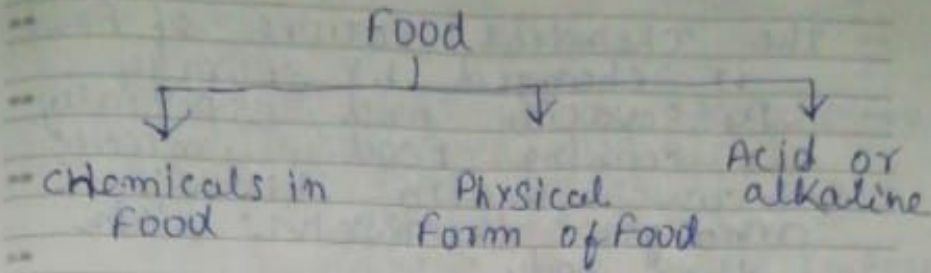 Food
Chemicals in
Food
Physical
Form of Food
Acid or
alkaline